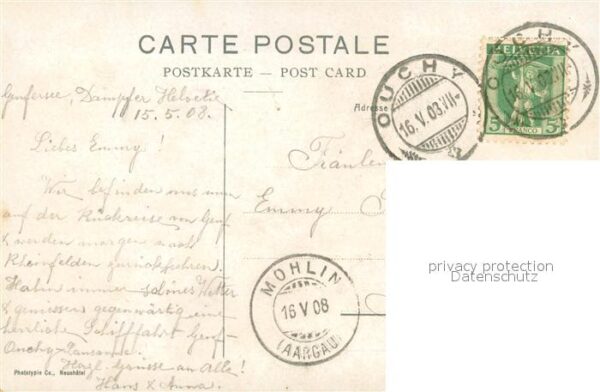 CARTE POSTALE
POSTKARTE – POST CARD
Adresse
Genfersee, Dampfer Helvetie
15.5.08.
Liebes Emmy!
Wir befinden uns nun
auf der Rückreise von Genf
& werden morgen nach
Rheinfelden zurückkehren.
Haben immer schönes Wetter
& geniessen gegenwärtig eine
herrliche Schifffahrt Genf-
Ouchy-Lausanne.
Herzl. Grüsse an Alle!
Hans & Anna.
Fräulein
Emmy
OUCHY
16.V.08.VII-
OUCHY
16.V.08.VII-
HELVETIA
5 5
FRANCO
MÖHLIN
16 V 08
(AARGAU)
privacy protection
Datenschutz
Phototypie Co., Neuchâtel